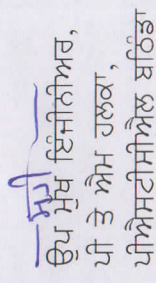 -ਸਹੀ-
ਉਪ ਮੁੱਖ ਇੰਜੀਨੀਅਰ,
ਪੀ ਤੇ ਐਮ ਹਲਕਾ,
ਪੀਐਸਟੀਸੀਐਲ ਬਠਿੰਡਾ